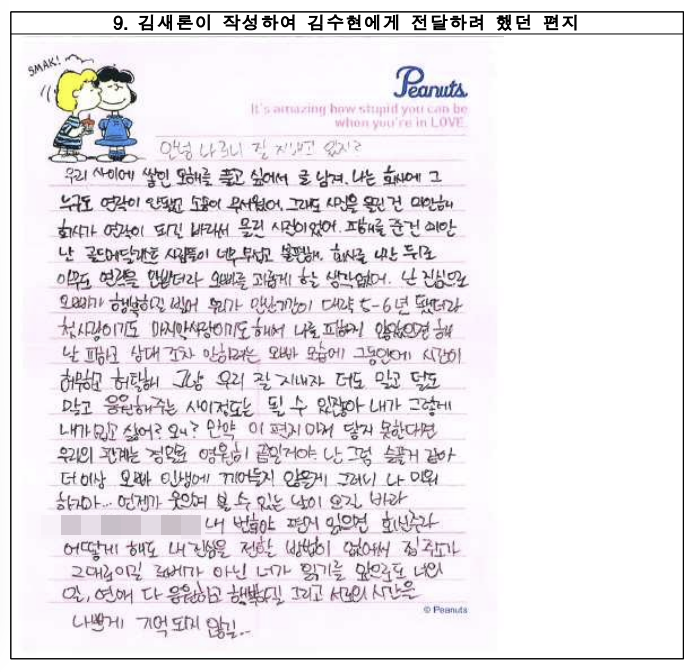 9. 김새론이 작성하여 김수현에게 전달하려 했던 편지
SMAK!
Peanuts
It's amazing how stupid you can be
when you're in LOVE.
안녕 나 새로니 잘 지내고 있지?
우리 사이에 쌓인 오해를 풀고 싶어서 글 남겨. 나는 회사에 그
누구도 연락이 안됐고 소송이 무서웠어. 그래도 사진을 올린 건 미안해
회사가 연락이 되길 바라서 올린 사진이었어. 피해를 준건 미안
난 골드메달리스트 사람들이 너무 무섭고 불편해. 회사를 나간 뒤로
아무도 연락을 안받더라 오빠를 괴롭게 할 생각없어. 난 진심으로
오빠가 행복하길 빌어 우리가 만난기간이 대략 5-6년 됐더라
첫사랑이기도 마지막사랑이기도 해서 나를 피하지 않았으면 해
날 피하고 상대 조차 안하려는 오빠 모습에 그동안에 시간이
허무하고 허탈해 그냥 우리 잘 지내자 더도 말고 덜도
말고 응원해주는 사이정도는 될 수 있잖아 내가 그렇게
내가 밉고 싫어? 왜? 만약 이 편지마저 닿지 못한다면
우리의 관계는 정말로 영원히 끝일거야 난 그럼 슬플거 같아
더 이상 오빠 인생에 끼어들지 않을게 그러니 나 미워
하지마... 언젠가 웃으며 볼 수 있는 날이 오길 바라
내 번호야 편지 읽으면 회신주라
어떻게 해도 내 진심을 전할 방법이 없어서 집주소가
그대로이길 로베가 아닌 너가 읽기를 앞으로도 너의
일, 연애 다 응원하고 행복하길 그리고 서로의 시간은
© Peanuts
나쁘게 기억되지 않길...